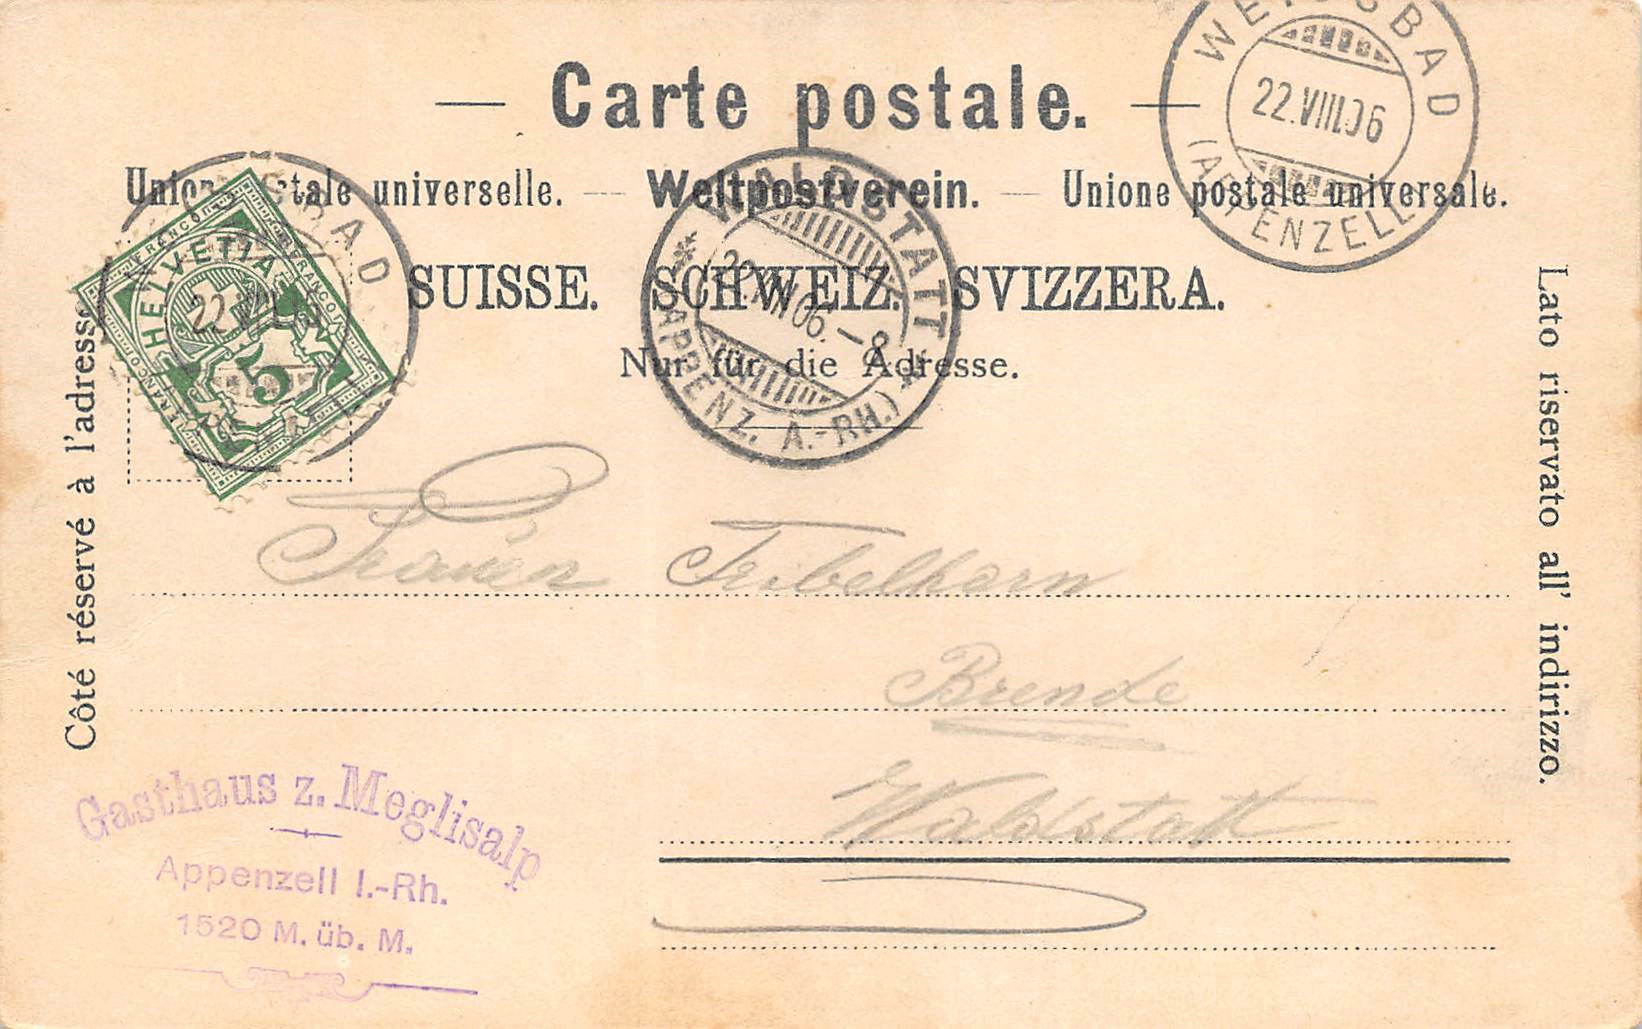 — Carte postale. —
Union postale universelle. — Weltpostverein. — Unione postale universale.
SUISSE. SCHWEIZ. SVIZZERA.
Nur für die Adresse.
Côté réservé à l'adresse
Lato riservato all' indirizzo.
WEISSBAD
22.VIII.06
(APPENZELL)
WALDSTATT
22.VIII.06.-8
(APPENZ. A.-RH.)
HELVETIA
FRANCO
5
22.VIII.06
Tribelhorn
Brende
Waldstatt
Gasthaus z. Meglisalp
Appenzell I.-Rh.
1520 M. üb. M.